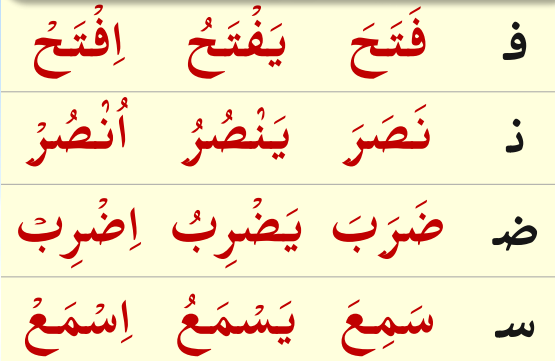 فـ فَتَحَ يَفْتَحُ اِفْتَحْ
نـ نَصَرَ يَنْصُرُ اُنْصُرْ
ضـ ضَرَبَ يَضْرِبُ اِضْرِبْ
سـ سَمِعَ يَسْمَعُ اِسْمَعْ